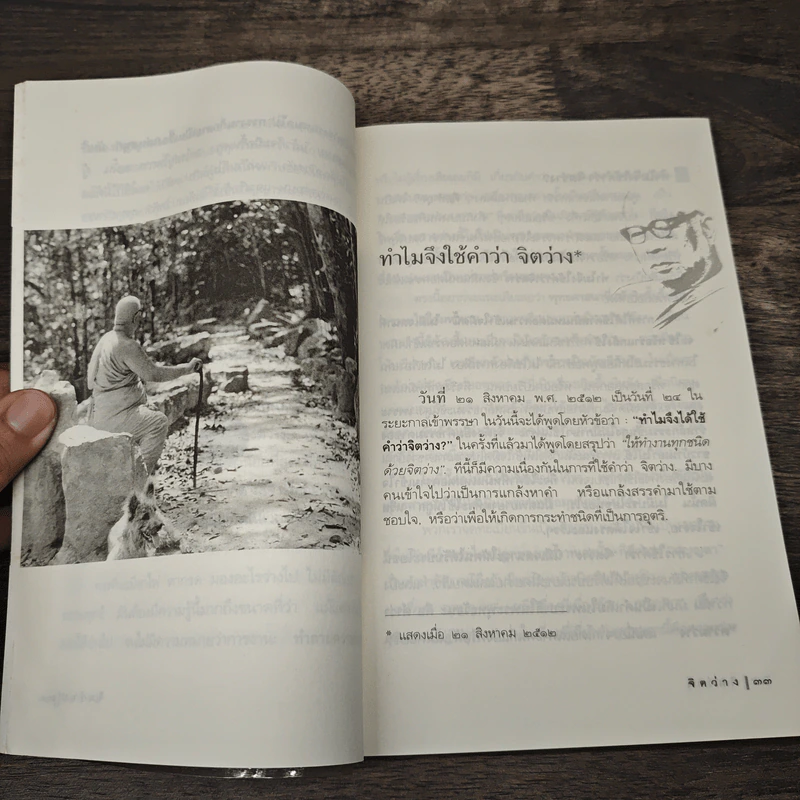 ทำไมจึงใช้คำว่า จิตว่าง*
วันที่ ๒๑ สิงหาคม พ.ศ. ๒๕๑๒ เป็นวันที่ ๒๔ ใน
ระยะกาลเข้าพรรษา ในวันนี้จะได้พูดโดยหัวข้อว่า : "ทำไมจึงได้ใช้
คำว่าจิตว่าง?" ในครั้งที่แล้วมาได้พูดโดยสรุปว่า "ให้ทำงานทุกชนิด
ด้วยจิตว่าง". ทีนี้ก็มีความเนื่องกันในการที่ใช้คำว่า จิตว่าง. มีบาง
คนเข้าใจไปว่าเป็นการแกล้งหาคำ หรือแกล้งสรรคำมาใช้ตาม
ชอบใจ. หรือว่าเพื่อให้เกิดการกระทำชนิดที่เป็นการอุตริ.
* แสดงเมื่อ ๒๑ สิงหาคม ๒๕๑๒
จิตว่าง | ๓๓